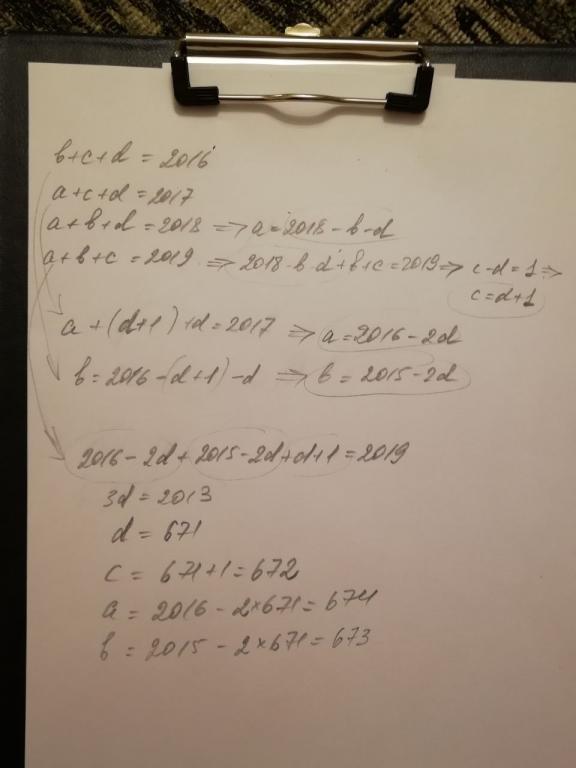 b+c+d = 2016
a+c+d = 2017
a+b+d = 2018 => a = 2018 - b - d
a+b+c = 2019 => 2018 - b - d + b + c = 2019 => c - d = 1 =>
c = d+1
a + (d+1) + d = 2017 => a = 2016 - 2d
b = 2016 - (d+1) - d => b = 2015 - 2d
2016 - 2d + 2015 - 2d + d + 1 = 2019
3d = 2013
d = 671
c = 671 + 1 = 672
a = 2016 - 2×671 = 674
b = 2015 - 2×671 = 673